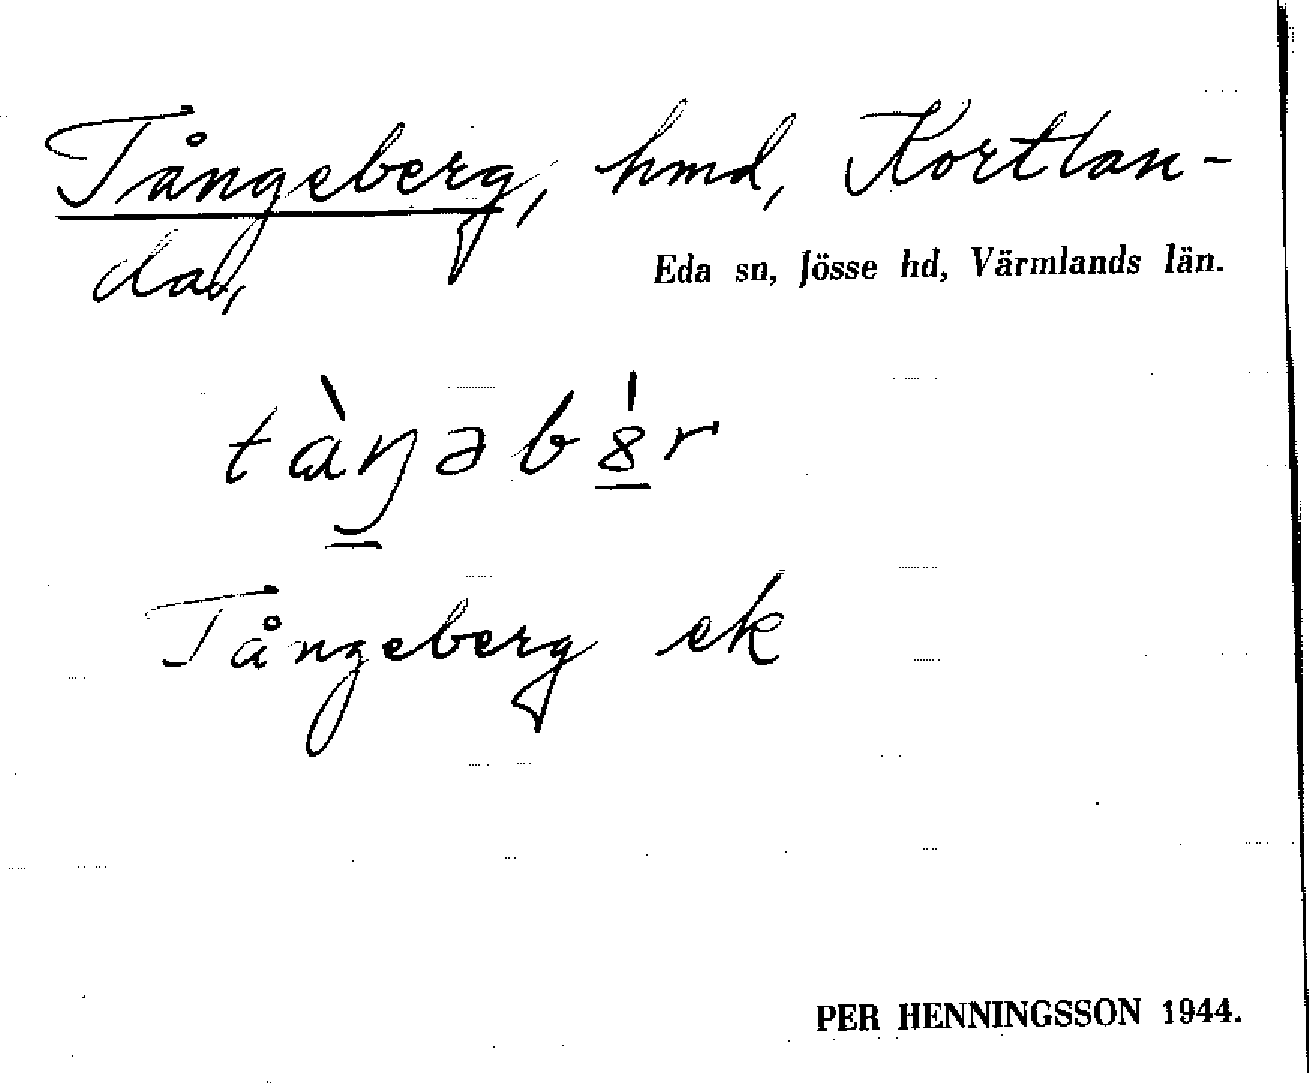 Tångeberg, hmd, Kortlan-
da,
Eda sn, Jösse hd, Värmlands län.
tàŋəb8́r
Tångeberg ek
PER HENNINGSSON 1944.